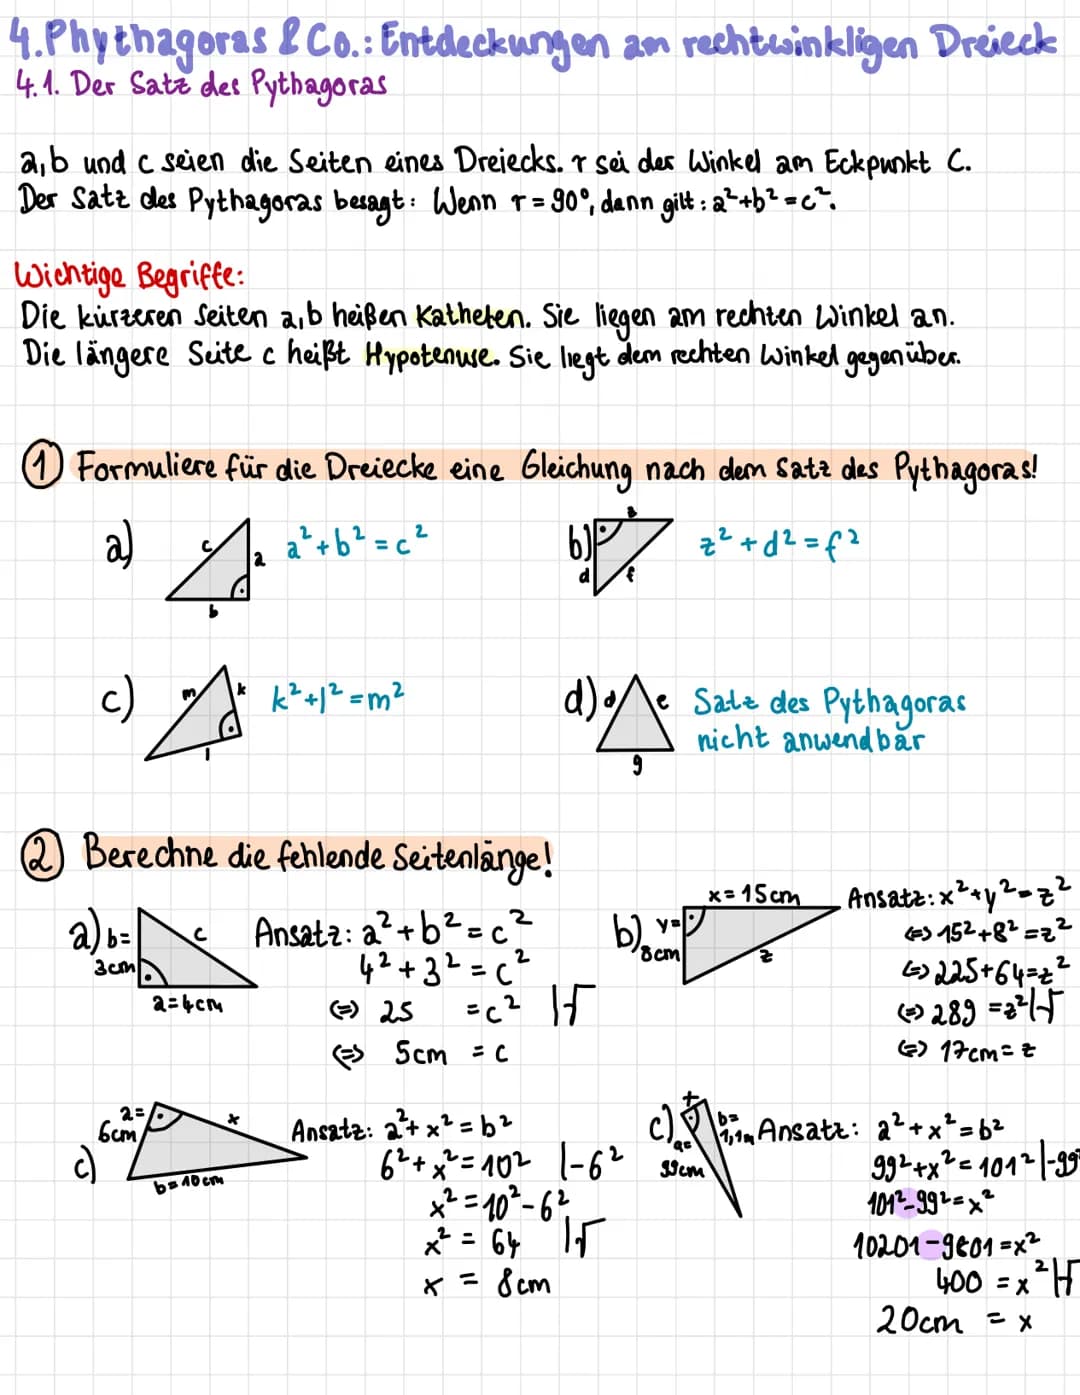 4. Phythagoras & Co.: Entdeckungen am rechtwinkligen Dreieck
4.1. Der Satz des Pythagoras
a, b und c seien die Seiten eines Dreiecks. γ sei der Winkel am Eckpunkt C.
Der Satz des Pythagoras besagt: Wenn γ = 90°, dann gilt: a²+b²=c².
Wichtige Begriffe:
Die kürzeren Seiten a, b heißen Katheten. Sie liegen am rechten Winkel an.
Die längere Seite c heißt Hypotenuse. Sie liegt dem rechten Winkel gegenüber.
① Formuliere für die Dreiecke eine Gleichung nach dem Satz des Pythagoras!
a) c a b a² + b² = c²
b) d f z² + d² = f²
c) m k l k² + l² = m²
d) d e g Satz des Pythagoras
nicht anwendbar
② Berechne die fehlende Seitenlänge!
a) b= 3cm c a=4cm
Ansatz: a² + b² = c²
4² + 3² = c²
⇔ 25 = c² |√
⇔ 5cm = c
b) x=15cm y= 8cm z
Ansatz: x²+y²=z²
⇔ 15²+8²=z²
⇔ 225+64=z²
⇔ 289 =z² |√
⇔ 17cm= z
c) a= 6cm x b=10cm
Ansatz: a²+ x² = b²
6²+ x² = 10² |-6²
x² = 10²-6²
x² = 64 |√
x = 8cm
c) a= b= 1,1m
Ansatz: a²+x²=b²
99²+x²=101² |-99²
101²-99²=x²
10201-9801=x²
400 = x² |√
20cm = x